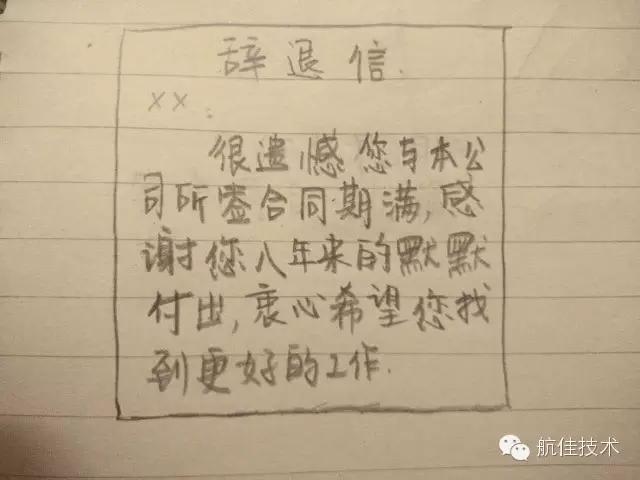 辞退信.
xx:
很遗憾您与本公
司所签合同期满,感
谢您八年来的默默
付出,衷心希望您找
到更好的工作.
航佳技术